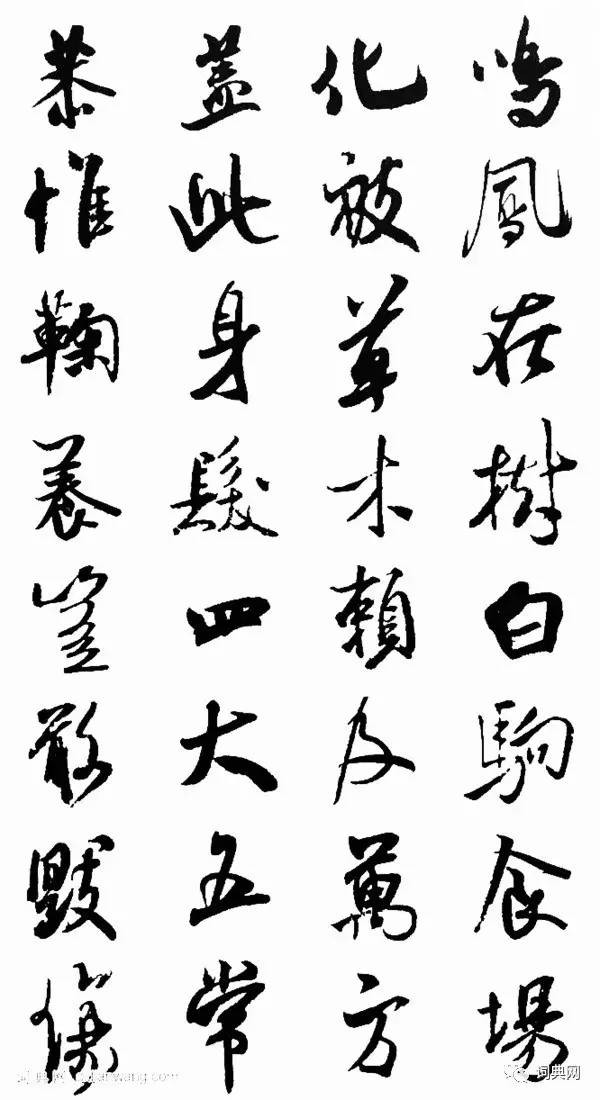 鳴鳳在樹白駒食場
化被草木賴及萬方
蓋此身髮四大五常
恭惟鞠養豈敢毀傷
词典网
词典网